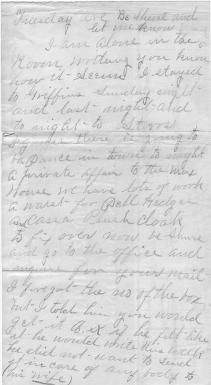 Tuesday are Be Shure and
let me know
I am alone in the
Room writing you know
how it seems I stayed
to Griffins Sunday night
and last night and
to night to Stars
there is going to
be Dance in town to night
a private affair to the
House we have lots of work
a waist for Bell Hedger
Plush Cloak
to fix over now be shure
and go to the office and
inquire for your mail
I forgot the no of the box
but I told him you would
get it if he felt like
he would write this week
he did not want to send
in care of any body to
his wife)